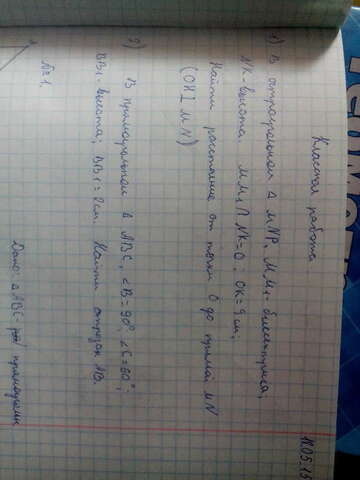 18.05.15
Классная работа
1) В остроугольном Δ MNP, MM₁ - биссектриса,
NK - высота. MM₁ ∩ NK = O; OK = 9 см;
Найти расстояние от точки O до прямой MN
(OH ⊥ MN)
2) В прямоугольном Δ ABC, ∠B = 90°, ∠C = 60°;
BB₁ - высота; BB₁ = 2 см. Найти отрезок AB.
№1.
Дано: Δ ABC -